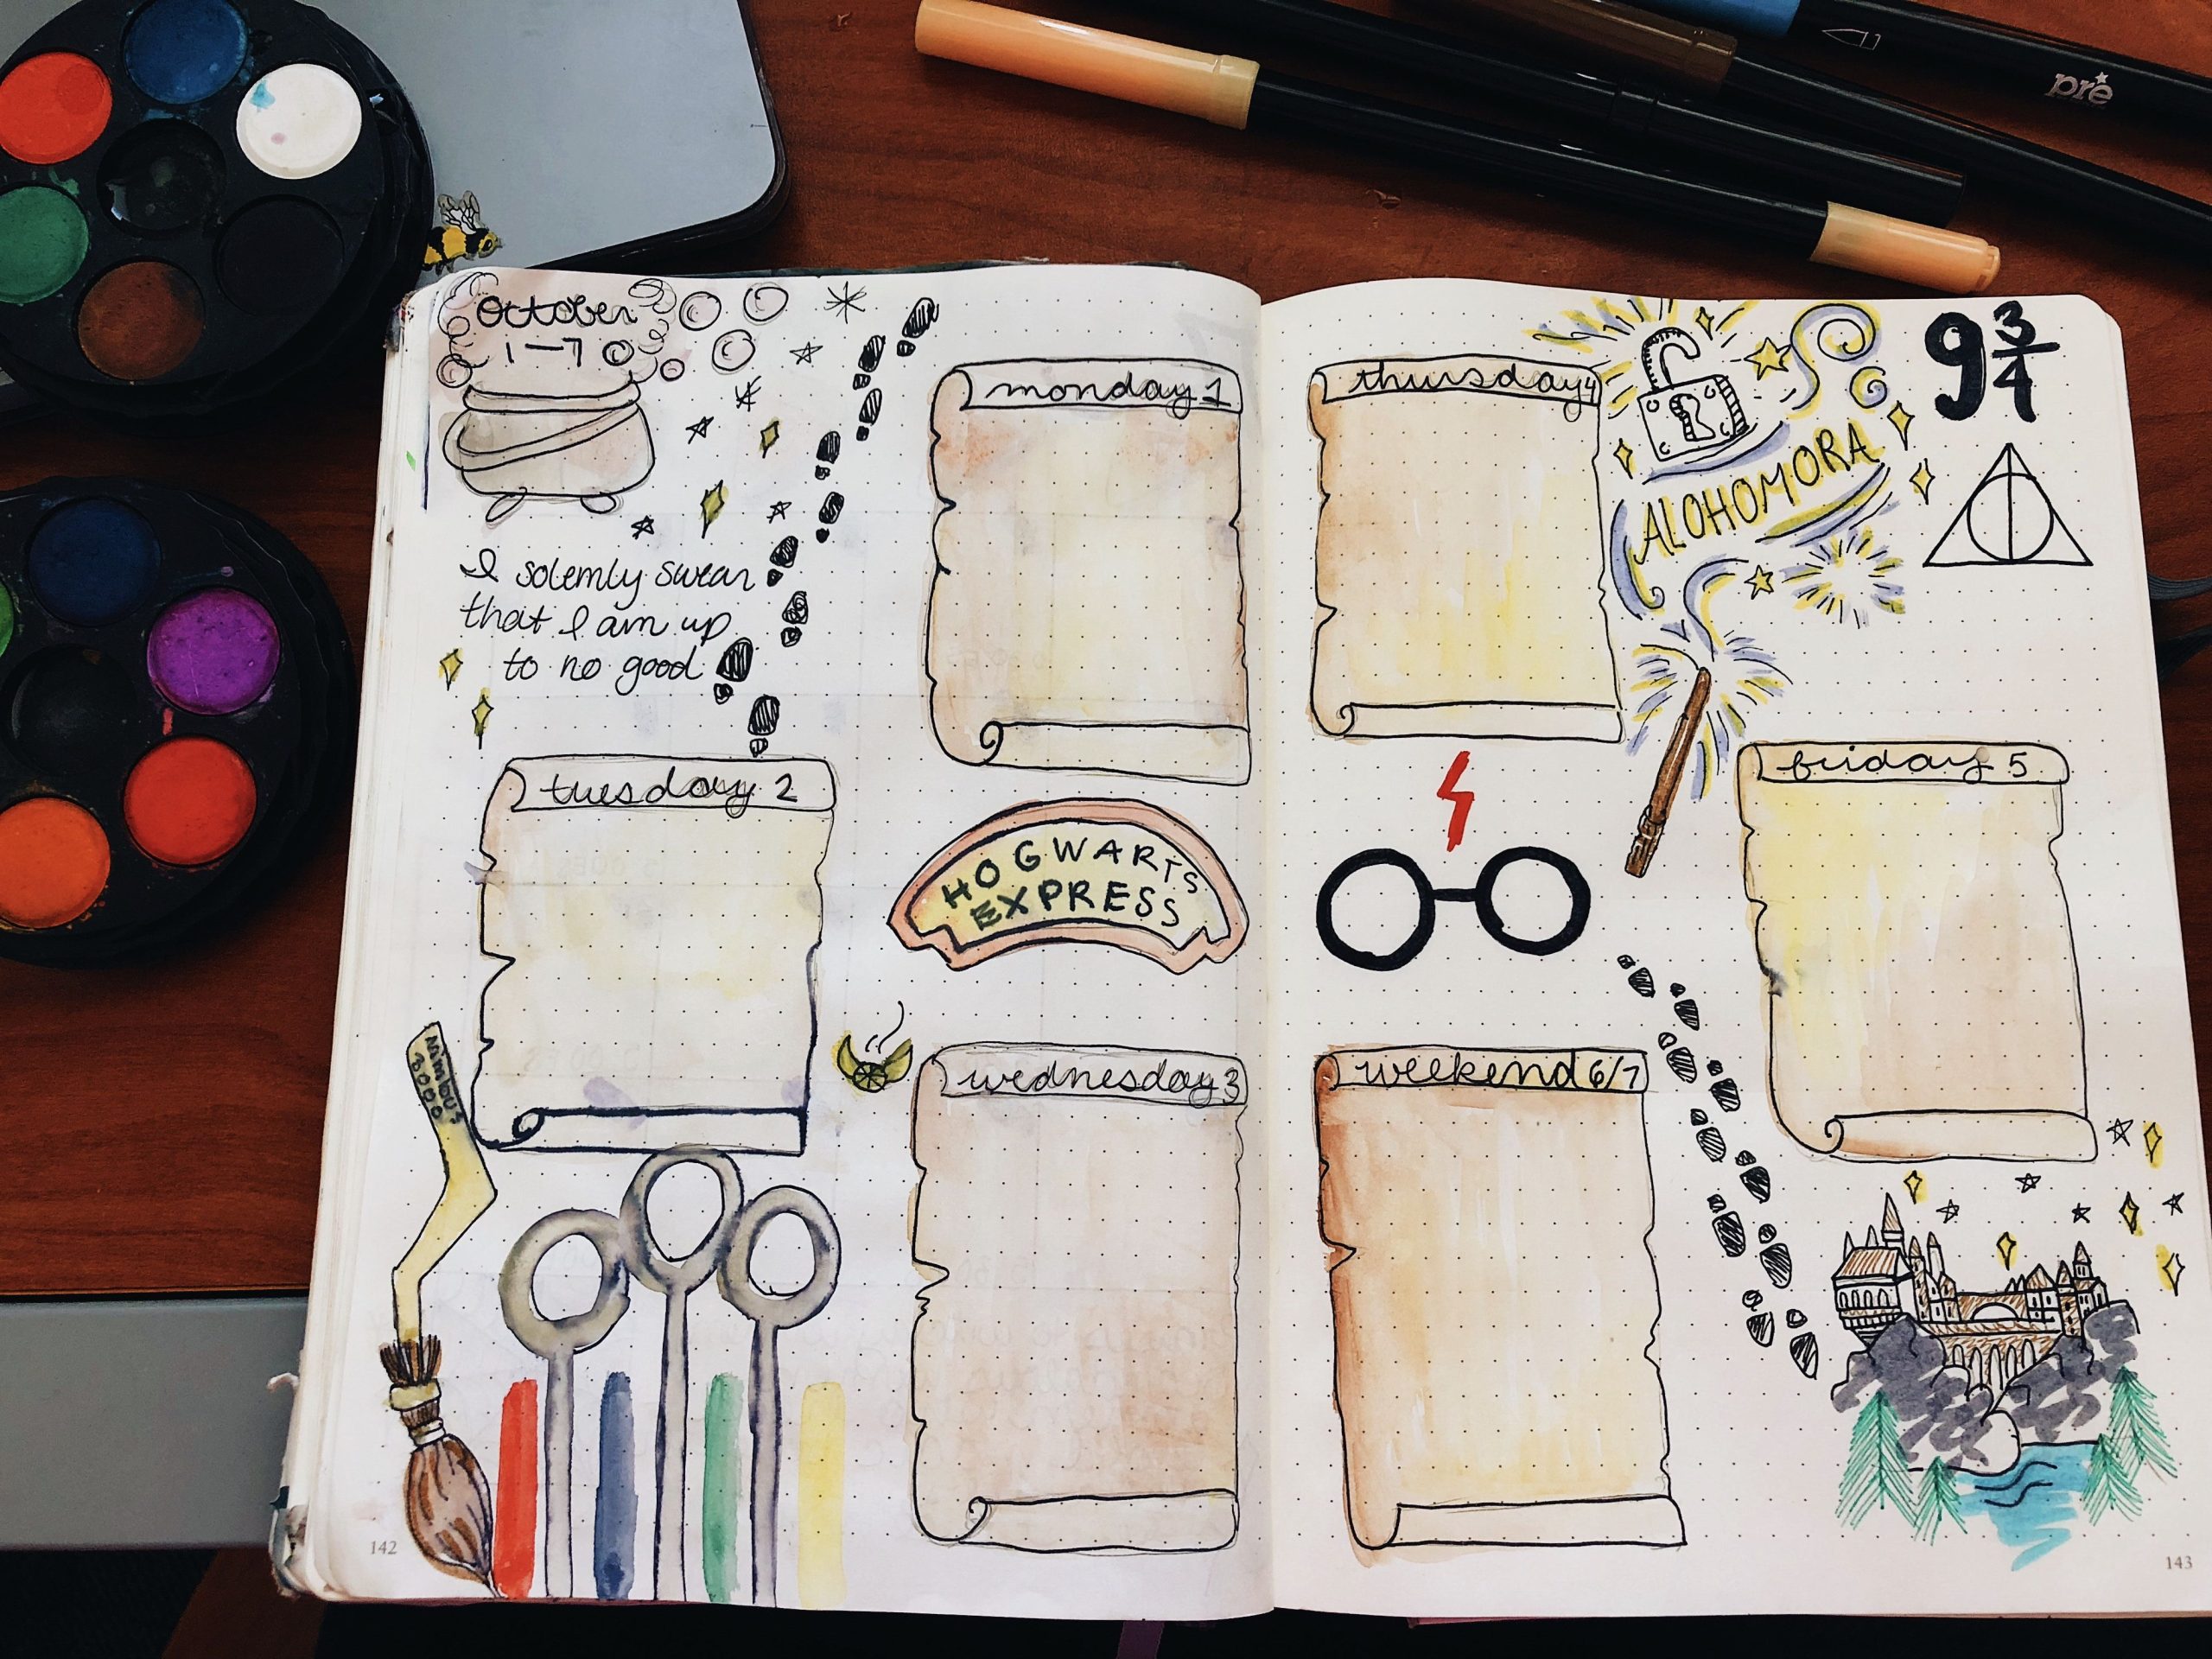 October
1-7
I solemly swear
that I am up
to no good
monday 1
tuesday 2
HOGWARTS
EXPRESS
wednesday 3
Nimbus
3000
142
thursday 4
ALOHOMORA
9 3/4
friday 5
weekend 6/7
143
pre